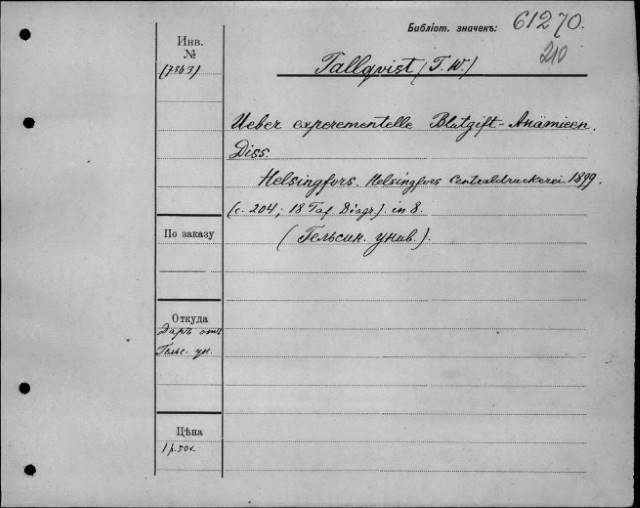 Библіот. значекъ: 61270.
210
Инв.
№
(7363)
Tallqvist (T. W.)
Ueber experementelle Blutgift-Anämieen.
Diss.
Helsingfors. Helsingfors Centraldruckerei 1899.
(с. 204; 18 Taf. Diagr.). in 8.
По заказу
(Гельсин. унив.).
Откуда
Даръ отъ
Гельс. ун.
Цѣна
1 р. 50 к.